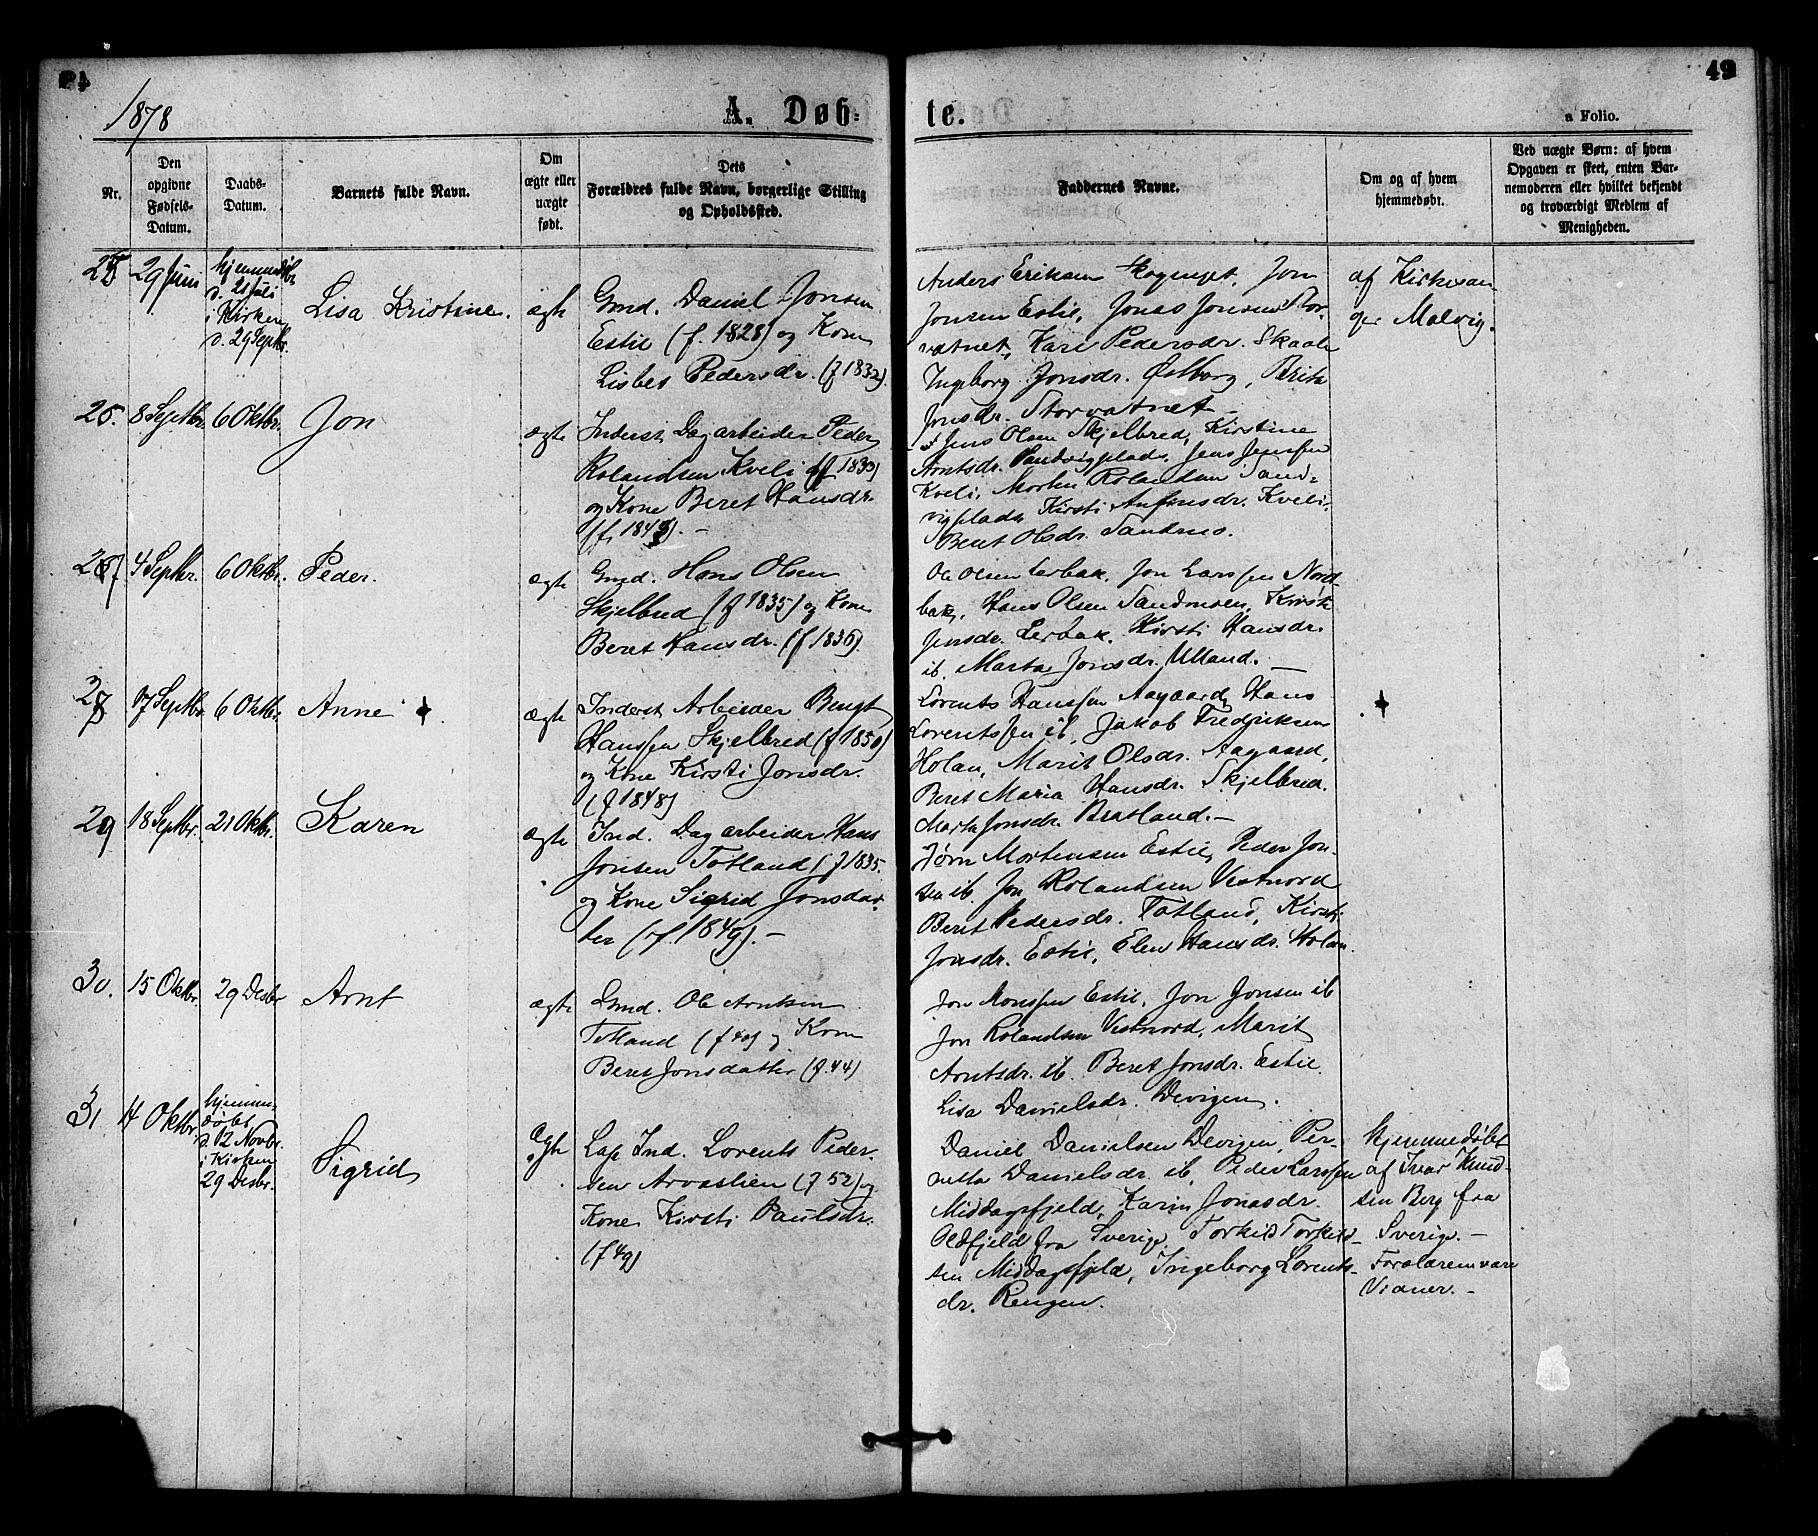 1878
A. Døb-
te.
49
a Folio.
Nr.
Den
opgivne
Fødsels-
Datum.
Daabs-
Datum.
Barnets fulde Navn.
Om
ægte eller
uægte
født.
Dets
Forældres fulde Navn, borgerlige Stilling
og Opholdssted.
Faddernes Navne.
Om og af hvem
hjemmedøbt.
Ved uægte Børn: af hvem
Opgaven er skeet, enten Bar-
nemoderen eller hvilket bekjendt
og troværdigt Medlem af
Menigheden.
29 Juni
hjemmedøbt
d. 21 Juli
i Kirken
d. 29 Septbr.
Lisa Kristine.
ægte
Gmd. Daniel Jonsen
Estil (f. 1828) og Kone
Lisbet Pedersdr. (f 1832).
Anders Eriksen Jon
Jonsen Estil, Jonas Jonsen Stor-
vatnet, Kari Pedersdr. Skaale
Ingeborg Jonsdr. Østborg, Berit
Jonsdr. Storvatnet
af Kirkesan-
ger Malvig.
26. 8 Septbr. 6 Oktbr.
Jon
ægte
Inderst, Dagarbeider Peder
Rolandsen Kveli (f 1833)
og Kone Beret Hansdr.
(f. 1849). -
Jens Olsen Skjelbred, Kirstine
Arntsdr. Sandvigplads, Jens Jensen
Kveli, Morten Rolandsen Sand-
vigplads Kirsti Anfinsdr. Kveli,
Beret Olsdr. Sandmo.
27 4 Septbr. 6 Oktbr.
Peder.
ægte
Gmd. Hans Olsen
Skjelbred (f 1835) og Kone
Beret Hansdr. (f 1836).
Ole Olsen Lerbak, Jon Larssen Nord-
bak, Hans Olsen Sandmoen, Kirsti
Jensdr. Lerbak, Kirsti Hansdr.
ib. Marta Jonsdr. Ulland. -
28 17 Septbr. 6 Oktbr.
Anne
ægte
Inderst Arbeider Bengt
Hanssen Skjelbred (f 1850)
og Kone Kirsti Jonsdr.
(f 1848)
Lorents Hanssen Aagaard, Hans
Lorentssen ib, Jakob Fredriksen
Holan, Marit Olsdr. Aagaard,
Beret Maria Hansdr. Skjelbred.
Marta Jonsdr. Bratland. -
29 18 Septbr. 21 Oktbr.
Karen
ægte
Ind. Dagarbeider Hans
Jonsen Totland (f 1835.
og Kone Sigrid Jonsdat-
ter (f. 1849). -
Jørn Mortensen Estil, Peder Jon-
sen ib. Jon Rolandsen Vestnord
Beret Pedersdr. Totland, Kirsti
Jonsdr. Estil, Elen Hansdr. Holan.
30. 15 Oktbr. 29 Desbr
Arnt
ægte
Gmd. Ole Arntsen
Totland (f 40) og Kone
Beret Jonsdatter (f. 44)
Jon Monssen Estil, Jon Jonsen ib
Jon Rolandsen Vestnord, Marit
Arntsdr. ib. Beret Jonsdr. Estil.
Lisa Danielsdr. Devigen.
31 14 Oktbr.
hjemme-
døbt
d. 12 Novbr.
i Kirken
29 Desbr.
Sigrid
ægte
Lap Ind. Lorents Peder-
sen Arvaslien (f 52) og
Kone Kirsti Paulsdr.
(f 49)
Daniel Danielsen Devigen, Per-
netta Danielsdr. ib, Peder Larssen
Middagsfjeld, Karin Jonasdr.
Oldfjeld fra Sverige, Torkild Torkild-
sen Middagsfjeld, Ingeborg Lorents-
dr. Rengen.
hjemmedøbt
af Ivar Knud-
sen Berg fra
Sverige. -
Forældrene vare